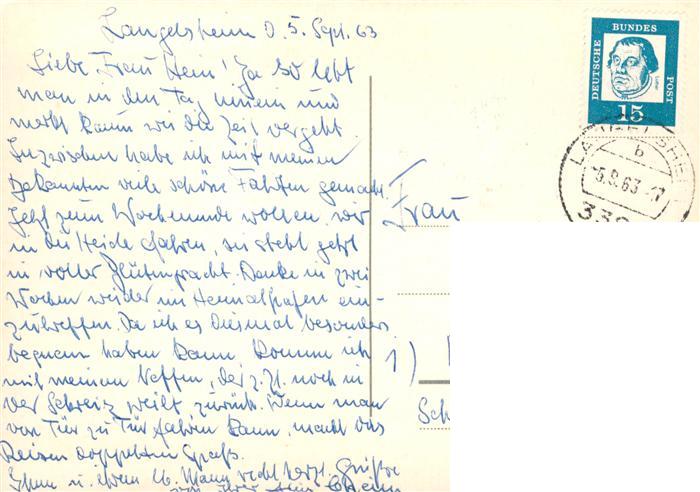 Langelsheim d. 5. Sept. 63
Liebe Frau Hein! Ja so lebt
man in den Tag hinein und
merkt kaum wie die Zeit vergeht.
Inzwischen habe ich mit meinen
Bekannten viele schöne Fahrten gemacht.
Jetzt zum Wochenende wollen wir
in die Heide fahren, sie steht jetzt
in voller Blütenpracht. Denke in zwei
Wochen wieder im Heimathafen ein-
zutreffen. Da ich es diesmal besonders
bequem haben kann, komme ich
mit meinem Neffen, der z. Zt. noch in
der Schweiz weilt zurück. Wenn man
von Tür zu Tür fahren kann, macht das
Reisen doppelten Spaß.
Ihnen u. Ihrem lb. Mann recht herzl. Grüße
von Ihrer
Frau
i)
Sch
DEUTSCHE
BUNDES
POST
15
LANGELSHEIM
b
-5.9.63-17
338